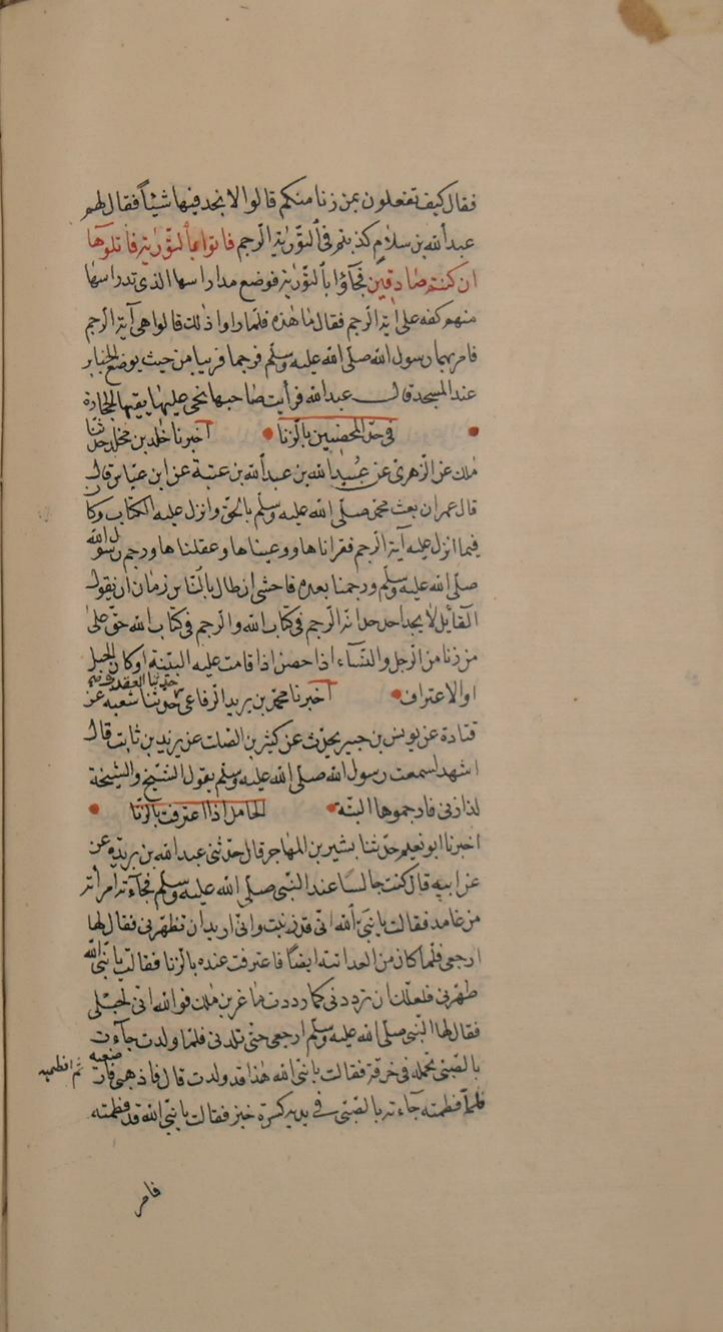 فقال كيف تفعلون بمن زنا منكم قالوا لا نجد فيها شيئاً فقال لهم
عبد الله بن سلام كذبتم في التورٰية الرجم فاتوا بالتورٰية فاتلوها
ان كنتم صادقين فجاؤا بالتورٰية فوضع مدراسها الذي تدراسها
منهم كفه على آية الرجم فقال ما هذه فلما راوا ذلك قالوا هي آية الرجم
فامر بهما رسول الله صلى الله عليه وسلم فرجما قريبا من حيث يوضع الجنايز
عند المسجد قال عبد الله فرأيت صاحبها يجني عليها يقيها الحجارة
في حد المحصنين بالزنا اخبرنا خالد بن مخلد حدثنا
ملك عن الزهري عن عبيد الله بن عبد الله بن عتبة عن ابن عباس قال
قال عمر ان بعث محمد صلى الله عليه وسلم بالحق وانزل عليه الكتاب وكان
فيما انزل عليه آية الرجم فقراناها ووعيناها وعقلناها ورجم رسول الله
صلى الله عليه وسلم ورجمنا بعده فاخشى ان طال بالناس زمان ان يقول
القائل لا يجد احد حد آية الرجم في كتاب الله والرجم في كتاب الله حق على
من زنا من الرجل والنساء اذا حصن اذا قامت عليه البينة او كان الحبل
او الاعتراف اخبرنا محمد بن يزيد الرفاعي حدثنا العقدي ثنا شعبة عن
قتادة عن يونس بن جبير يحدث عن كثير بن الصلت عن زيد بن ثابت قال
اشهد لسمعت رسول الله صلى الله عليه وسلم يقول الشيخ والشيخة
اذا زنى فارجموها البتة الحامل اذا اعترفت بالزنا
اخبرنا ابو نعيم حدثنا بشير بن المهاجر قال حدثني عبد الله بن بريدة عن
عن ابيه قال كنت جالسا عند النبي صلى الله عليه وسلم فجاءته امراة
من غامد فقالت يا نبي الله اني قد زنيت واني اريد ان تطهرني فقال لها
ارجعي فلما كان من الغد اتته ايضاً فاعترفت عنده بالزنا فقالت يا نبي الله
طهرني فلعلك ان ترددني كما رددت ماعز بن ملك فوالله اني لحبلى
فقال لها النبي صلى الله عليه وسلم ارجعي حتى تلدي فلما ولدت جاءت
بالصبي تحمله في خرقة فقالت يا نبي الله هذا قد ولدت قال فاذهبي فارضعيه ثم افطميه
فلما فطمته جاءته بالصبي في يده كسرة خبز فقالت يا نبي الله قد فطمته
فامر